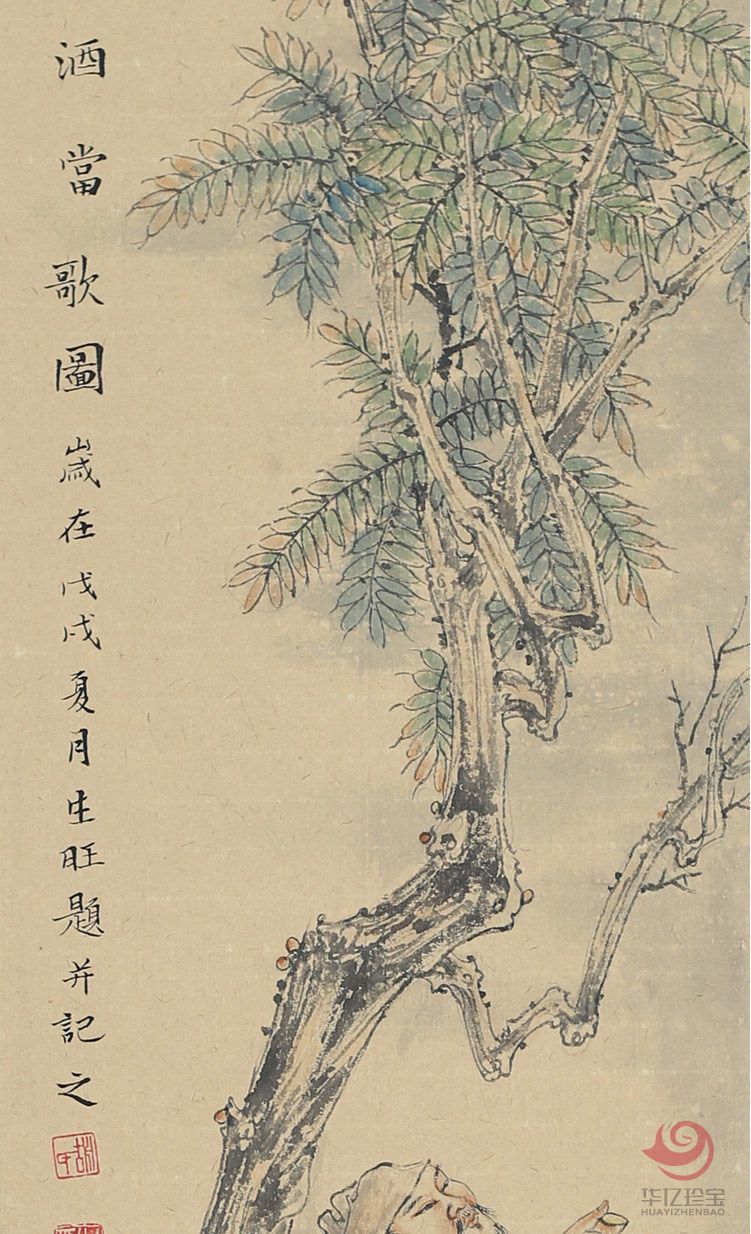 酒當歌圖歲在戊戌夏月生旺題并記之
华亿珍宝
HUAYIZHENBAO